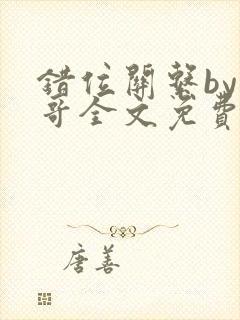 錯位關繫by
哥全文免費
唐善